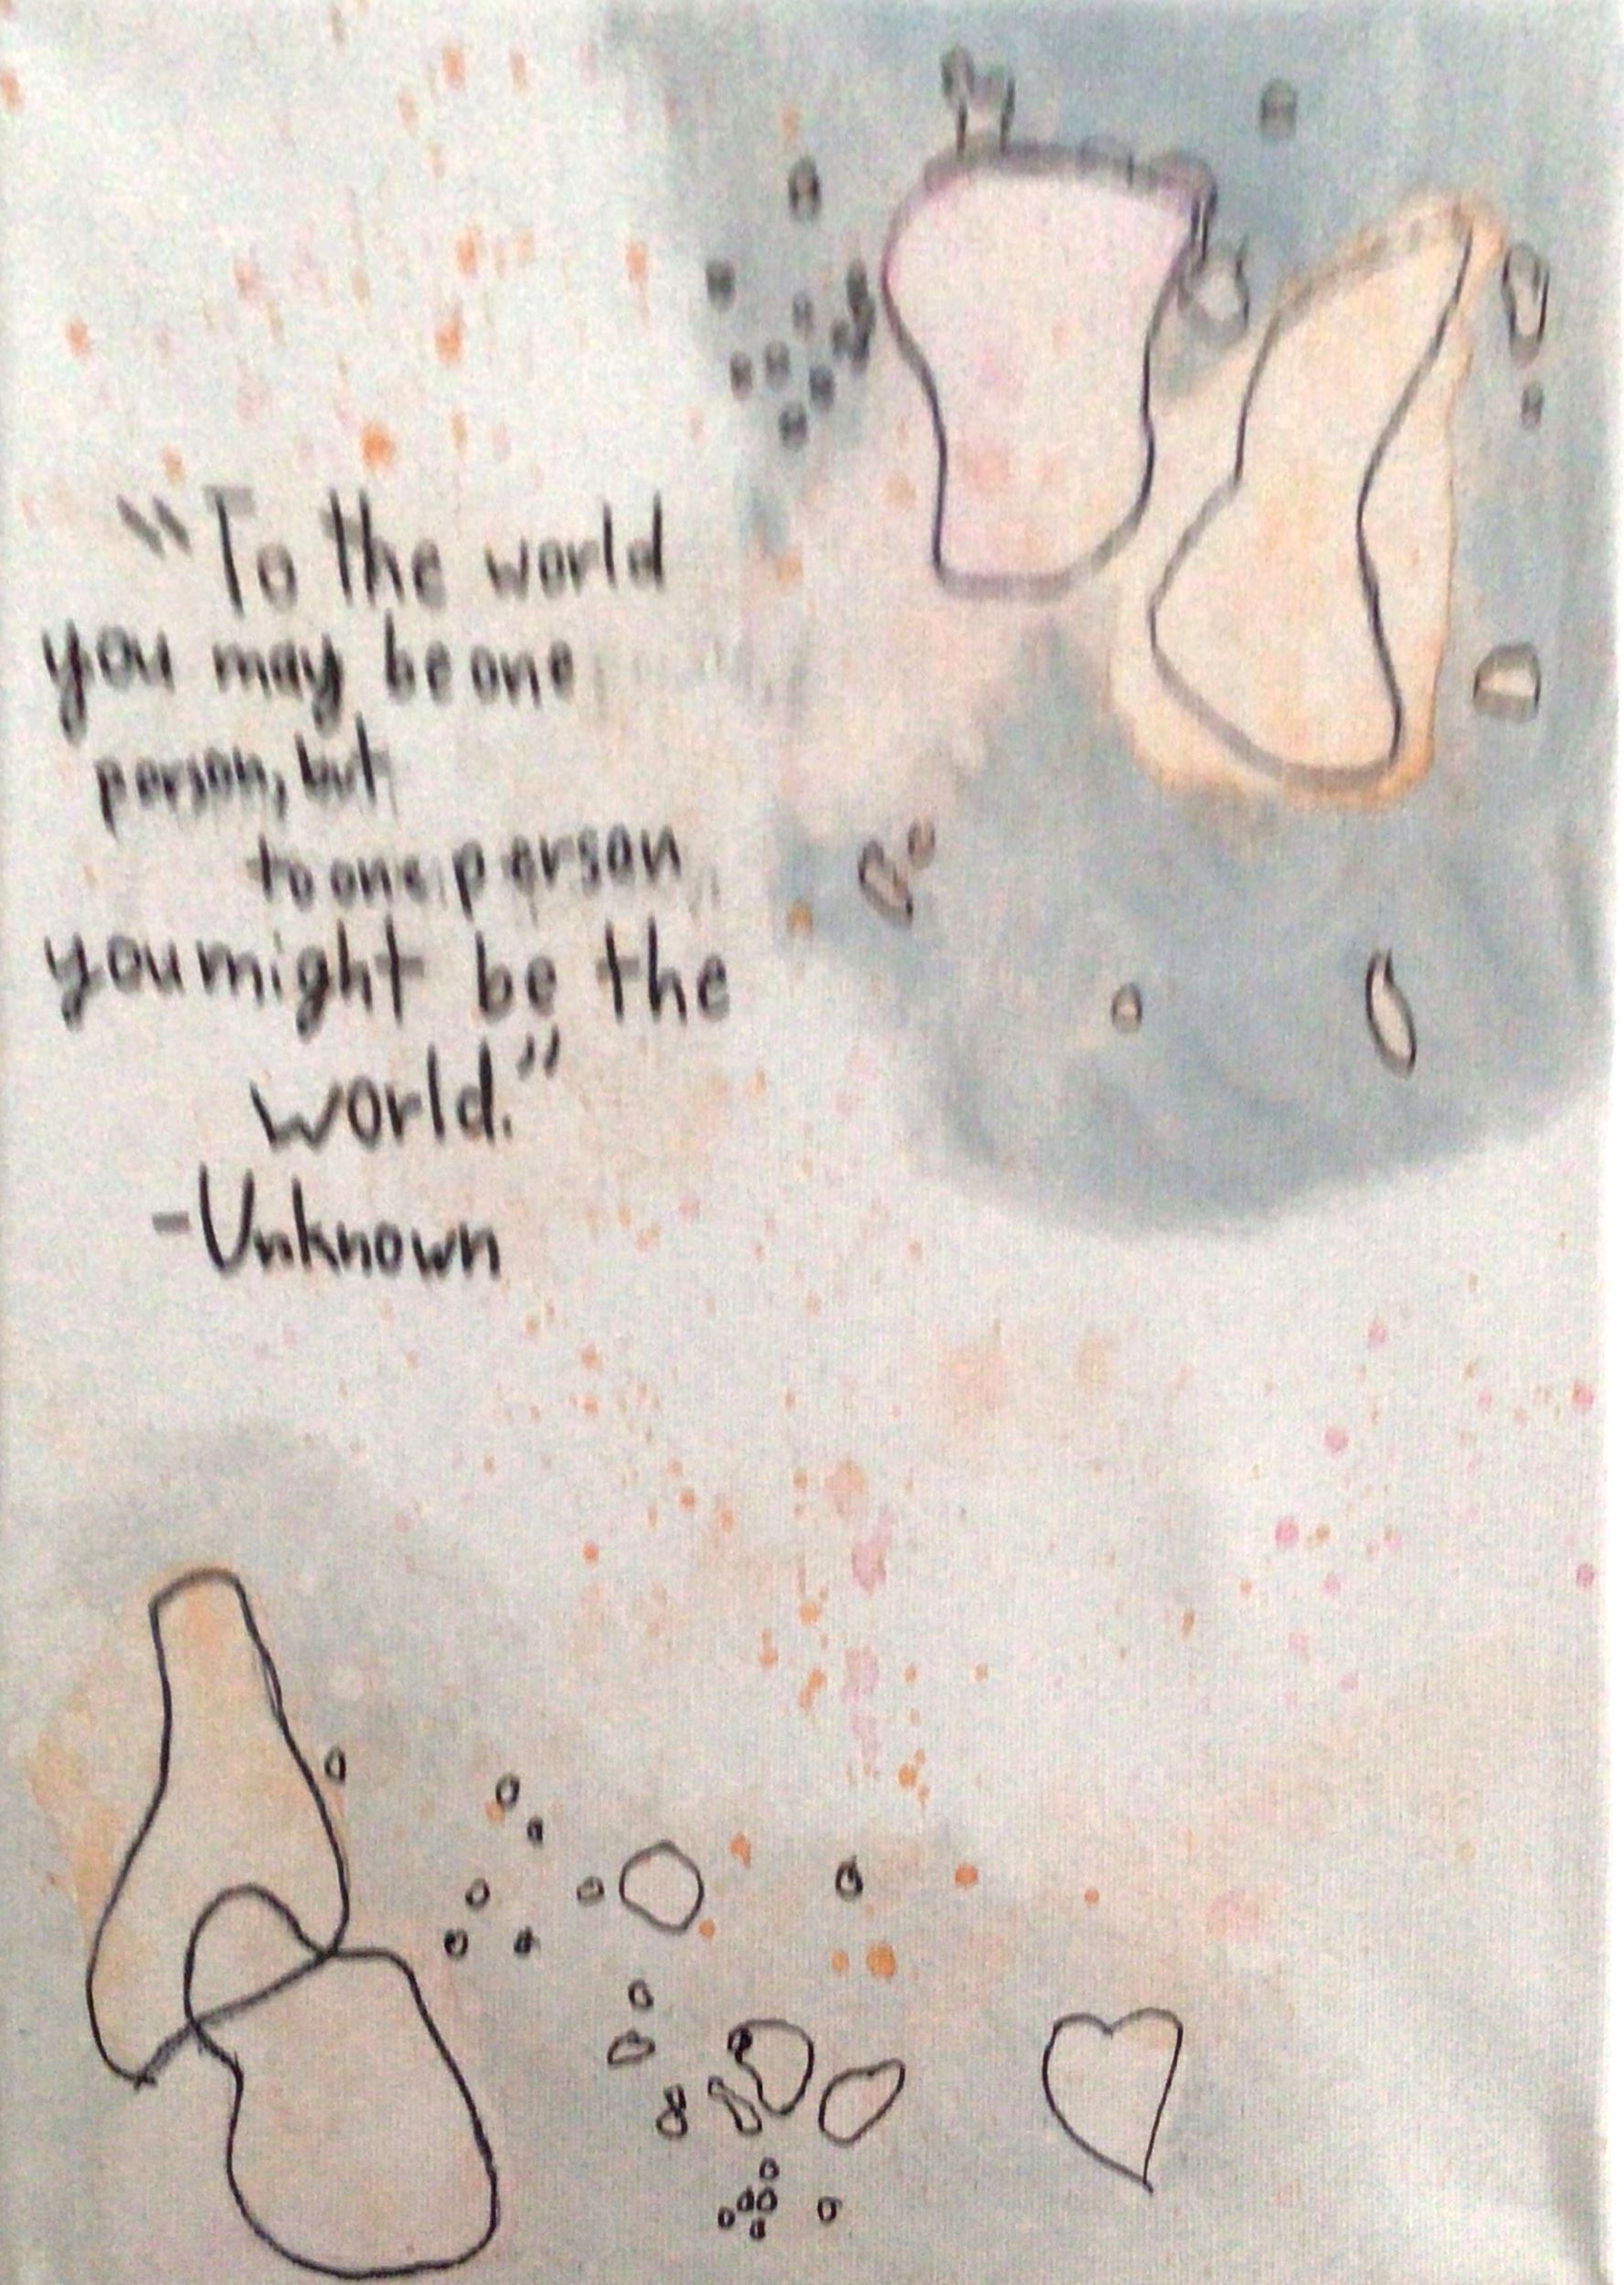 "To the world
you may be one
person, but
to one person
you might be the
world."
-Unknown